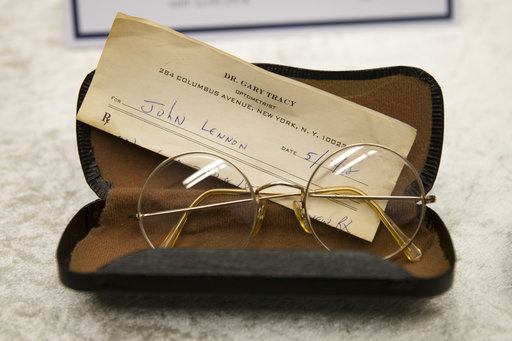 DR. GARY TRACY
OPTOMETRIST
284 COLUMBUS AVENUE, NEW YORK, N. Y. 10023
FOR John Lennon
DATE 5/1
Rx
New Rx